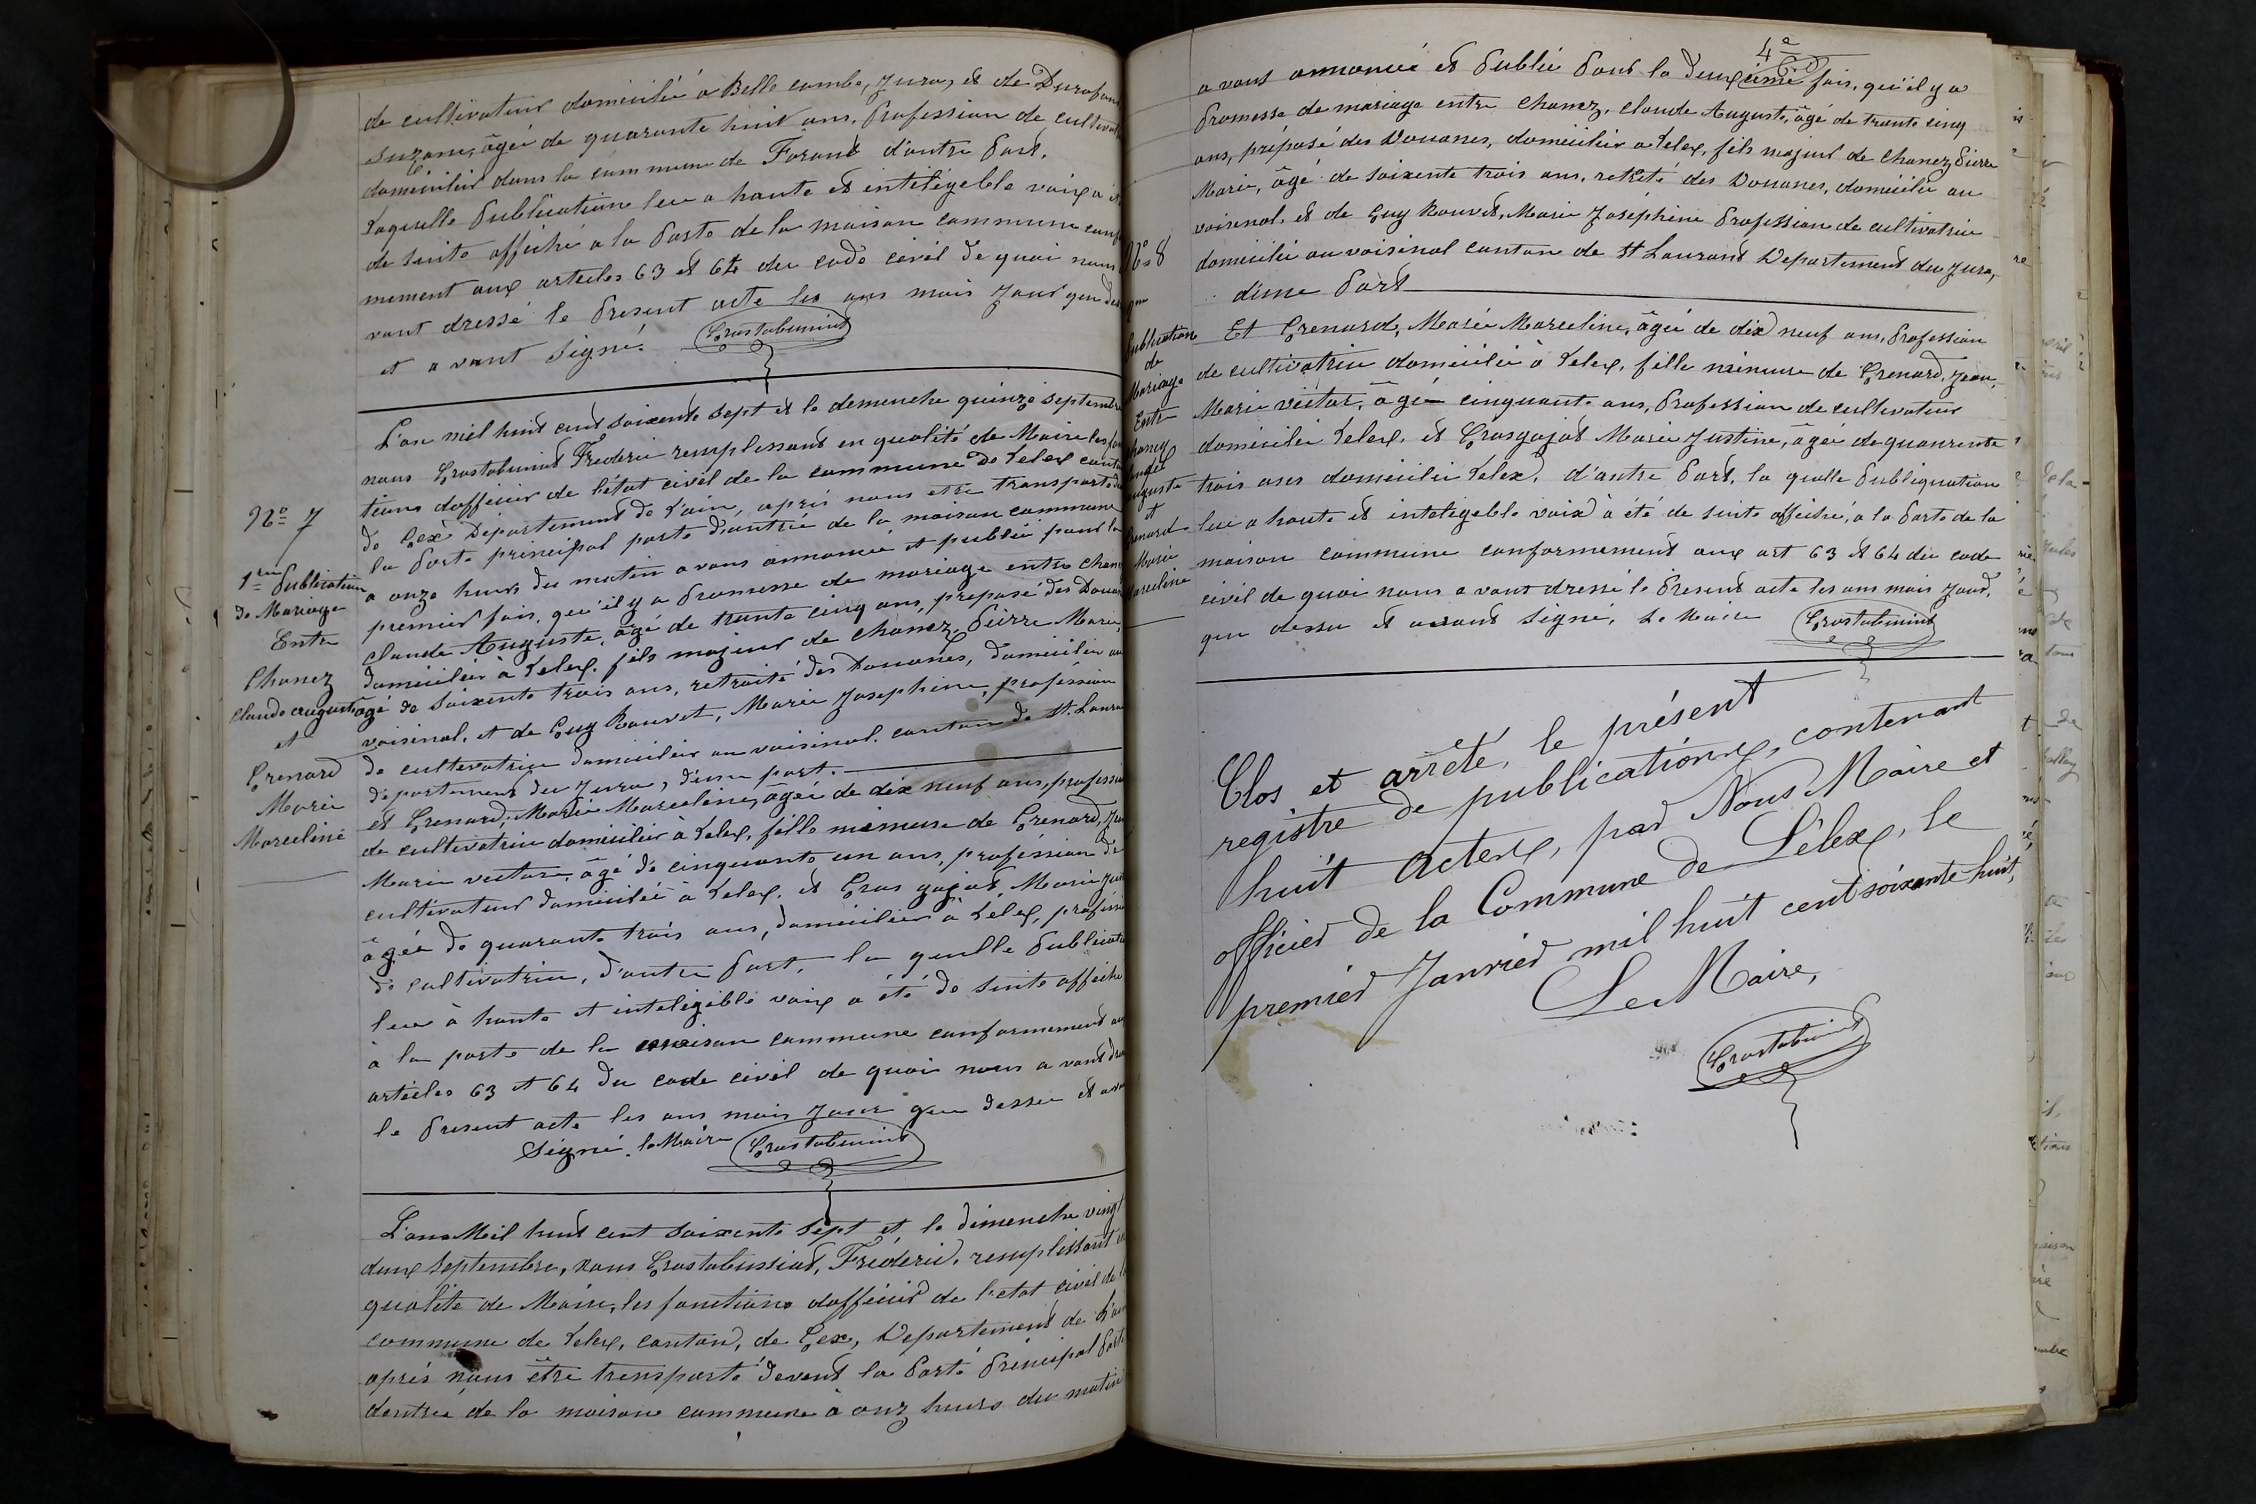 de cultivateur domicilié a Belle combe, Jura, et de Durafour
Suzane, âgée de quarante huit ans, profession de cultivat
domicilier dans la commune de Forans d'autre part.
Laquelle publication lue a haute et inteligeble voix a été
de suite affiché a la porte de la maison commune conf
mement aux articles 63 et 64 du code civil de quoi nous
vont dressé le present acte les ans mois jour que des
et a vont signé. Grostabussiat
N° 7
1re publication
de Mariage
Entre
Chanez
Claude auguste
et
Grenard
Marie
Marceline
L'an miel huit cent soixente sept et le demenche quinze septembre
nous Grostabussiat Frederic remplessant en qualité de Maire les fon
tions d'afficier de l'etat civil de la commune de Lelex canton
de Gex Departement de l'ain, aprés nous etre transporté de
la porte principal porte d'entrée de la maison commune
a onze heurs du matin a vons annoncé et publié pour la
premier fois, qu'il y a promesse de mariage entre Chanez
claude Auguste, âgé de trante cinq ans, préposé des Douan
domicilier à Lelex. fils majeur de Chanez, Pierre Marie,
âgé de soixente trois ans, retraité des Douanes, domicilier au
voisinal. et de Guy Rouvet, Marie Josephine, proféssion
de cultevatrice domicilier au voisinal. canton de St. Lauran
departement du Jura, d'une part.
et Grenard, Marie Marceline, âgée de dix neuf ans, professi
de cultivatrice domicilier à Lelex, fille mineure de Grenard, Jean
Marie victor, âgé de cinquante un ans, proféssion de
cultivateur domicilié à Lelex. et Gros gojat, Marie Jus
âgée de quarante trois ans, domicilier à Lélex, proféssi
de cultivatrice, d'autre part, la quelle publicati
lue à haute et inteligible voix a été de suite affiche
à la porte de la maison commune conformement au
articles 63 et 64 du code civil de quoi nous a vont dre
le present acte les ans mois jour que dessu et avon
Signé. le Maire Grostabussiat
L'an Meil huit cent soixente sept et le dimenche vingt
deux septembre, nous Grostabussiat, Fréderic, remplissant en
qualité de Maire, les fonctions d'affcier de l'etat civil de l
commune de Lelex, canton, de Gex, Departement de l'ain
aprés nous être transporté devant la porte principal porte
dentrée de la maison commune à onz heurs du matin
4e
N° 8
2me
publication
de
Mariage
Entre
Chanez
Claude
auguste
et
Grenard
Marie
Marceline
a vons annoncé et publié pour la deuxième fois, qu'il y a
promesse de mariage entre Chanez, claude Auguste, âgé de trante cinq
ans, préposé des Douanes, domicilier a Lelex, fils majeur de Chanez, Pierre
Marie, âgé de soixente trois ans, retreté des Douanes, domicilié au
voisinal, et de Guy Rouvet, Marie Joséphine profession de cultivatrice
domicilié au voisinal canton de St Laurans Departement du Jura,
d'une part
Et Grenard, Marie Marceline, âgée de dix neuf ans, profession
de cultivatrice domicilié à Lelex, fille mineure de Grenard, Jean,
Marie victor, âgée cinquante ans, profession de cultivateur
domicilié Lelex. et Grosgojat Marie Justine, âgée de quanrente
trois ans domicilié Lelex, d'autre part, la quelle publiquation
lue a haute et inteligeble voix à été de suite affiché, a la porte de la
maison commune conformement aux art 63 et 64 du code
civil de quoi nous a vont dressé le present acte les ans mois jour,
que dessu et avons signé, Le Maire Grostabussiat
Clos et arrêté, le présent
registre de publications, contenant
huit actes, par Nous Maire et
officier de la Commune de Lélex, le
premier Janvier mil huit cent soixante huit,
Le Maire,
Grostabussiat